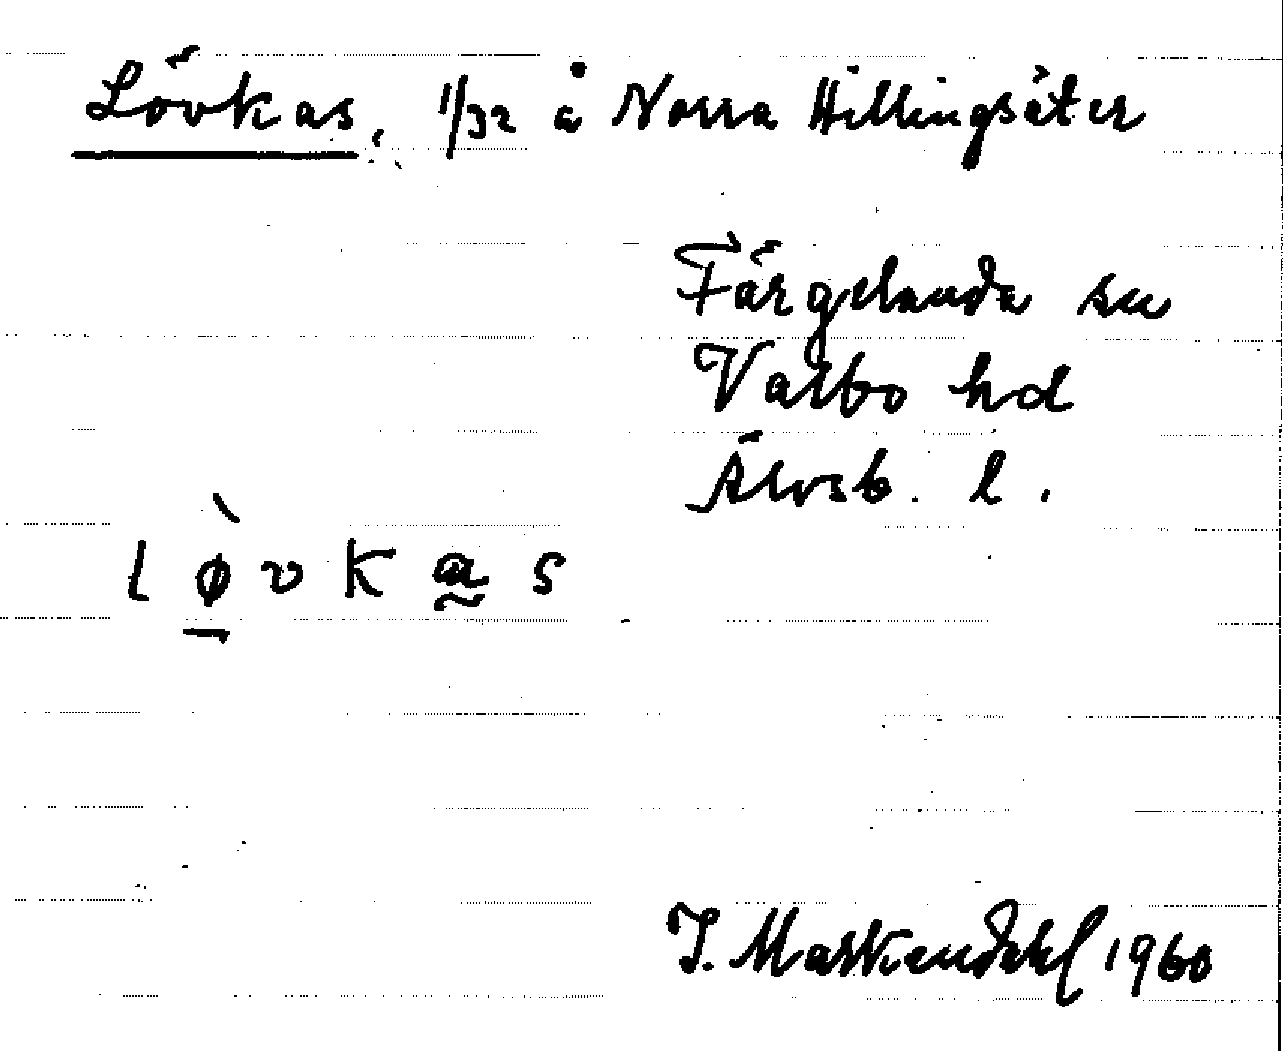 Lövkas, 1/32 å Norra Hillingsäter
Färgelanda sn
Valbo hd
Älvsb. l.
l ø̀ v k a s
J. Markendahl 1960